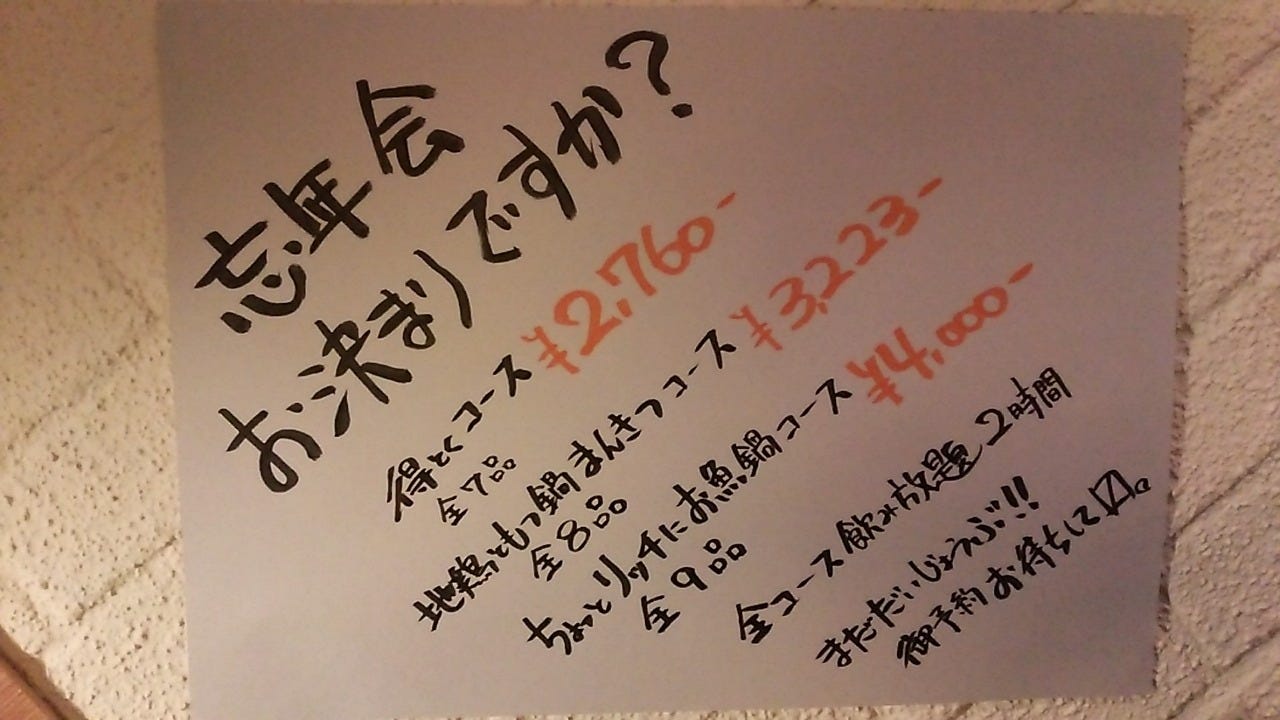 忘年会
お決まりですか?
得とくコース ¥2,760-
全7品
地鶏ともつ鍋まんきつコース ¥3,223-
全8品
ちょっとリッチにお魚鍋コース ¥4,000-
全9品
全コース飲み放題2時間
まだだいじょうぶ!!
御予約お待ちして〼。